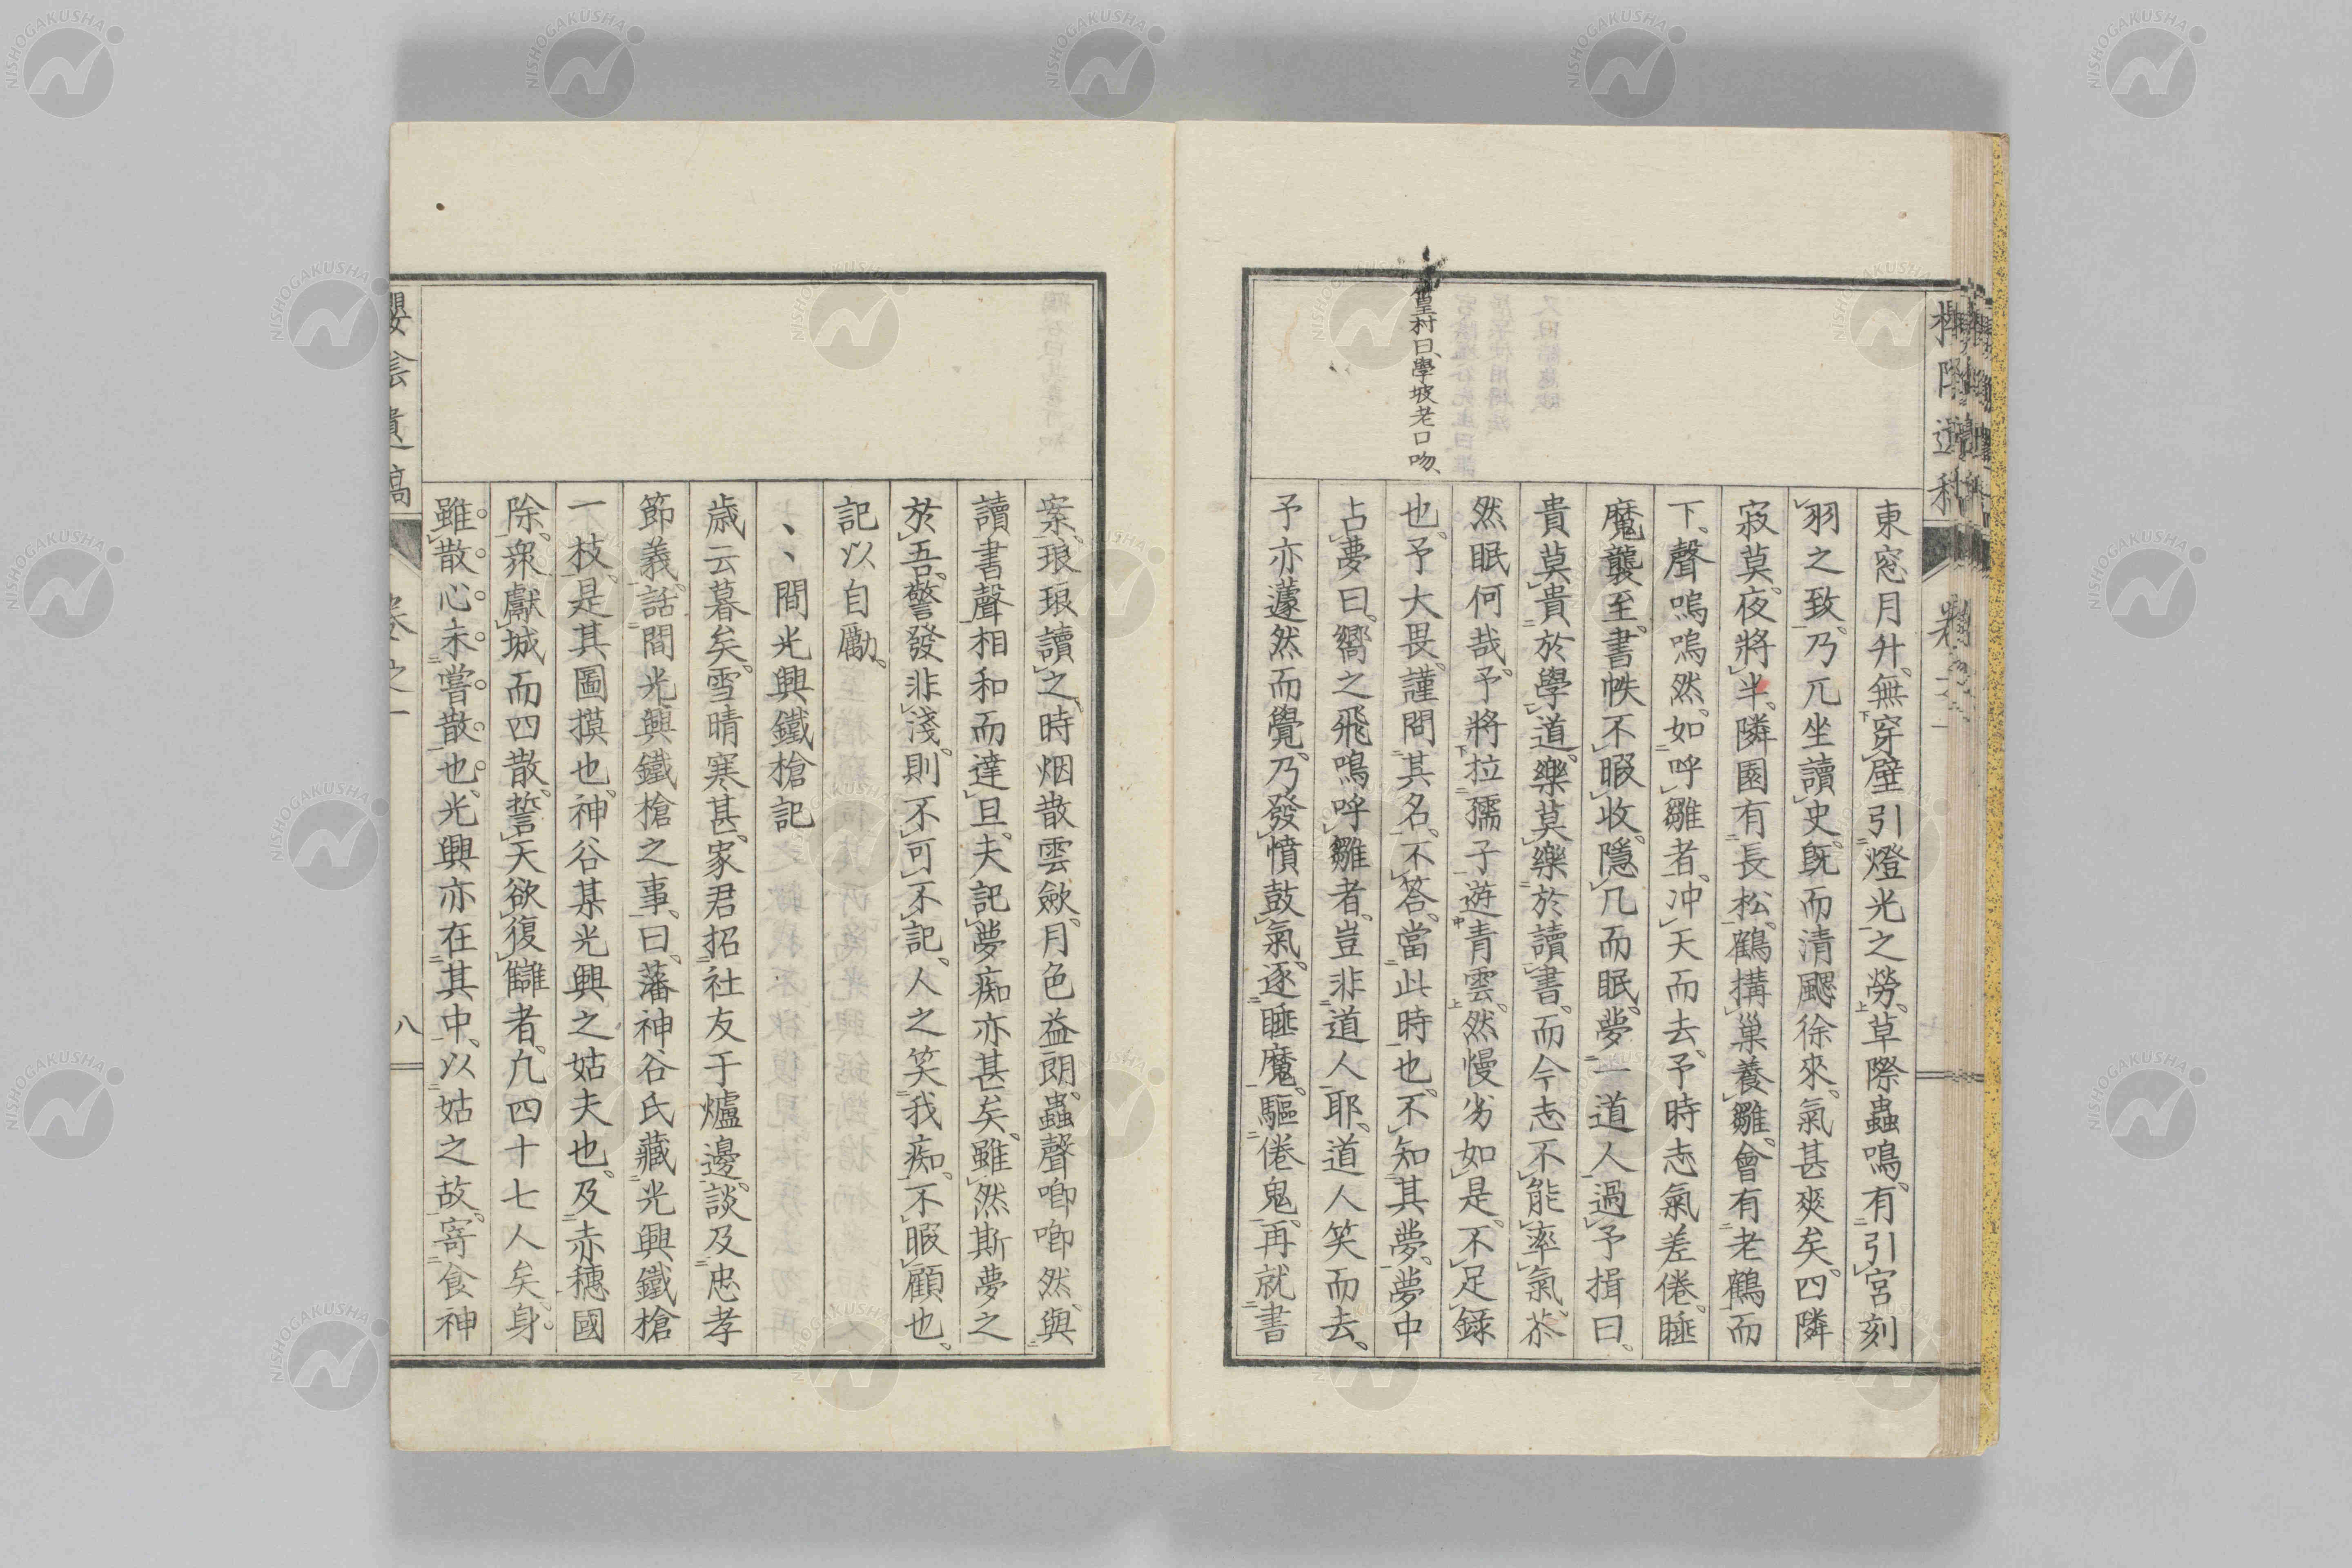 東窓月升、無穿壁引燈光之勞。草際蟲鳴、有引宮刻
羽之致。乃兀坐讀史。既而清颸徐來。氣甚爽矣。四隣
寂莫。夜將半。隣園有長松。鶴搆巢養雛。會有老鶴而
下。聲嗚嗚然。如呼雛者。冲天而去。予時志氣差倦。睡
魔襲至。書帙不暇收。隱几而眠。夢一道人過予揖曰。
貴莫貴於學道。樂莫樂於讀書。而今志不能率氣。苶
然眠何哉。予將拉孺子遊青雲。然慢劣如是。不足錄
也。予大畏。謹問其名。不答。當此時也。不知其夢。夢中
占夢曰。嚮之飛鳴呼雛者。豈非道人耶。道人笑而去。
予亦蘧然而覺。乃發憤鼓氣。逐睡魔。驅倦鬼。再就書
篁村曰、學坡老口吻、
案、琅琅讀之、時烟散雲歛。月色益朗。蟲聲喞喞然。與
讀書聲相和而達旦。夫記夢痴亦甚矣。雖然斯夢之
於吾。警發非淺。則不可不記。人之笑我痴。不暇顧也。
記以自勵。
丶丶間光興鐵槍記
歳云暮矣。雪晴寒甚。家君招社友于爐邊。談及忠孝
節義。話間光興鐵槍之事。曰。藩神谷氏藏光興鐵槍
一枝。是其圖摸也。神谷某光興之姑夫也。及赤穗國
除。衆獻城而四散。誓天欲復讎者。凢四十七人矣。身
雖散心未嘗散也。光興亦在其中。以姑之故。寄食神
櫻陰遺稿
卷之一
八